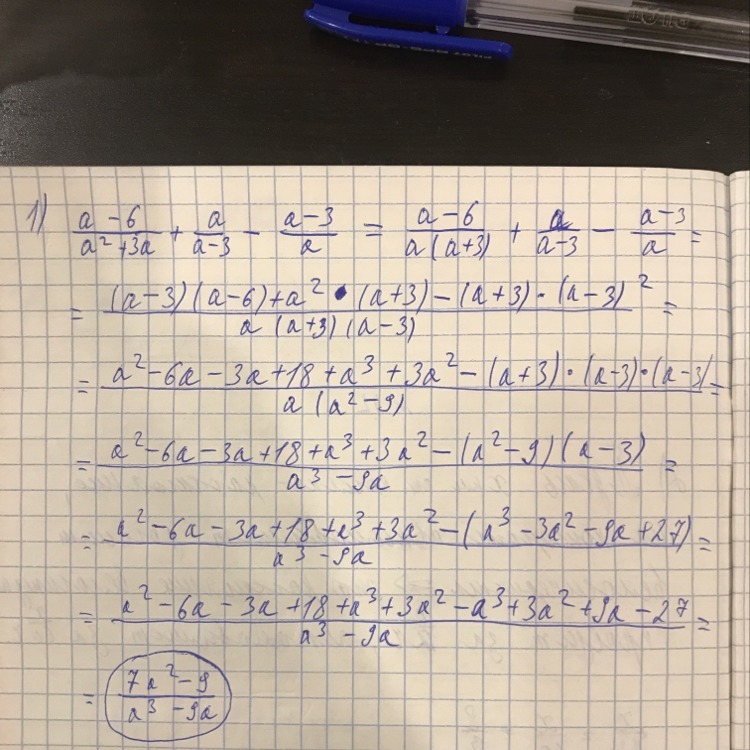 1) (a-6)/(a²+3a) + a/(a-3) - (a-3)/a = (a-6)/(a(a+3)) + a/(a-3) - (a-3)/a =
= ((a-3)(a-6)+a²·(a+3)-(a+3)·(a-3)²)/(a(a+3)(a-3)) =
= (a²-6a-3a+18+a³+3a²-(a+3)·(a-3)·(a-3))/(a(a²-9)) =
= (a²-6a-3a+18+a³+3a²-(a²-9)(a-3))/(a³-9a) =
= (a²-6a-3a+18+a³+3a²-(a³-3a²-9a+27))/(a³-9a) =
= (a²-6a-3a+18+a³+3a²-a³+3a²+9a-27)/(a³-9a) =
= (7a²-9)/(a³-9a)